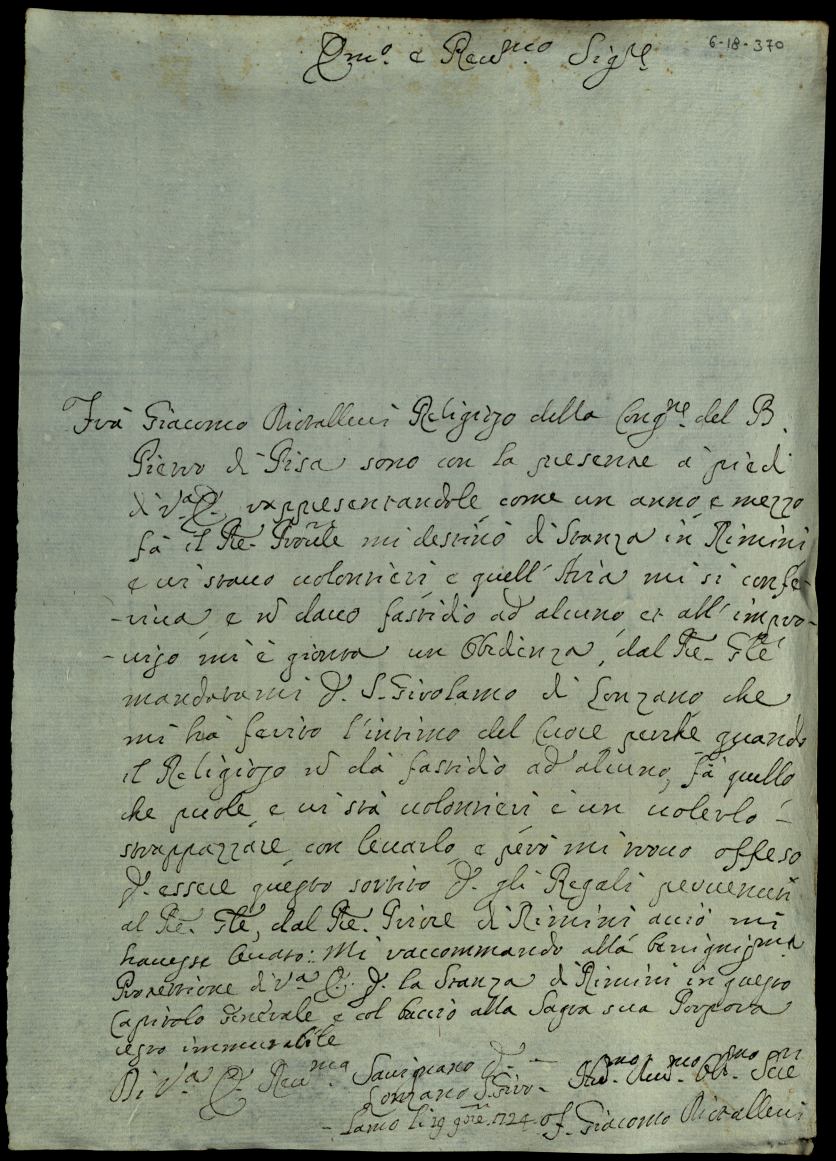 6-18-370
Em.º e Reu.mo Sig.re
Frà Giacomo Religiozo della Cong.ne del B.
Pietro di Pisa sono con la presente a piedi
di V.a E. rappresentandole come un anno e mezzo
fà il P.re Prou.le mi destinò di Stanza in Rimini
e ui stauo uolontieri e quell'Aria mi si confe-
-riua e nō dauo fastidio ad alcuno et all'impro-
-uizo mi è gionta un Obedienza, dal P.re G.le
mandatami p. S. Girolamo di Lonzano che
mi hà ferito l'intimo del Cuore perche quando
il Religiozo nō dà fastidio ad alcuno, fà quello
che puole, e ui stà uolontieri è un uolerlo -
strappazzare con leuarlo, e però mi trouo offeso
p. essere questo sortito p. gli Regali peruenuti
al P.re G.le, dal P.re Priore di Rimini acciò mi
hauesse leuato: Mi raccommando alla benignis.ma
Protettione di V.a E. p. la Stanza di Rimini in questo
Capitolo Generale e col baccio alla Sagra sua Porpora
resto immutabile
Di V.a E. Reu.ma Sauignano p. -
Lonzano S. Giro-
-lamo li 19 9bre 1724
Hu.mo Deu.mo Ob.mo Ser.re
f. Giacomo